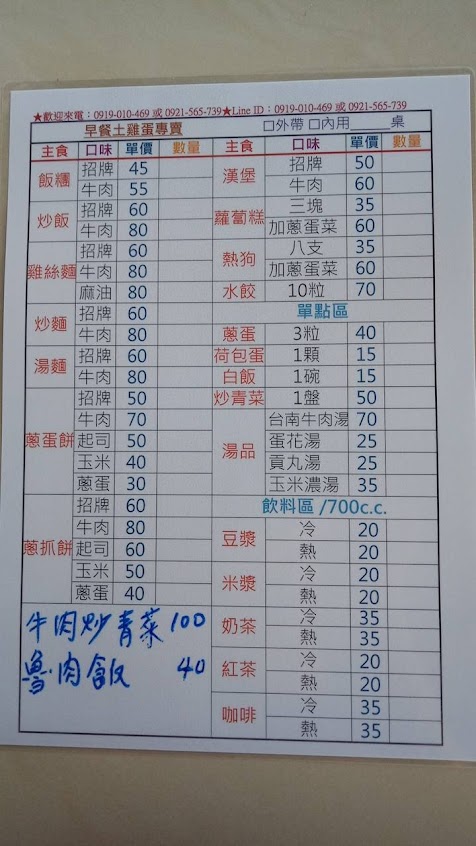 ★歡迎來電：0919-010-469 或 0921-565-739★Line ID：0919-010-469 或 0921-565-739
早餐土雞蛋專賣 □外帶 □內用______桌
主食 口味 單價 數量
飯糰 招牌 45
牛肉 55
炒飯 招牌 60
牛肉 80
雞絲麵 招牌 60
牛肉 80
麻油 80
炒麵 招牌 60
牛肉 80
湯麵 招牌 60
牛肉 80
蔥蛋餅 招牌 50
牛肉 70
起司 50
玉米 40
蔥蛋 30
蔥抓餅 招牌 60
牛肉 80
起司 60
玉米 50
蔥蛋 40
牛肉炒青菜 100
魯肉飯 40
主食 口味 單價 數量
漢堡 招牌 50
牛肉 60
蘿蔔糕 三塊 35
加蔥蛋菜 60
熱狗 八支 35
加蔥蛋菜 60
水餃 10粒 70
單點區
蔥蛋 3粒 40
荷包蛋 1顆 15
白飯 1碗 15
炒青菜 1盤 50
湯品 台南牛肉湯 70
蛋花湯 25
貢丸湯 25
玉米濃湯 35
飲料區 /700c.c.
豆漿 冷 20
熱 20
米漿 冷 20
熱 20
奶茶 冷 35
熱 35
紅茶 冷 20
熱 20
咖啡 冷 35
熱 35